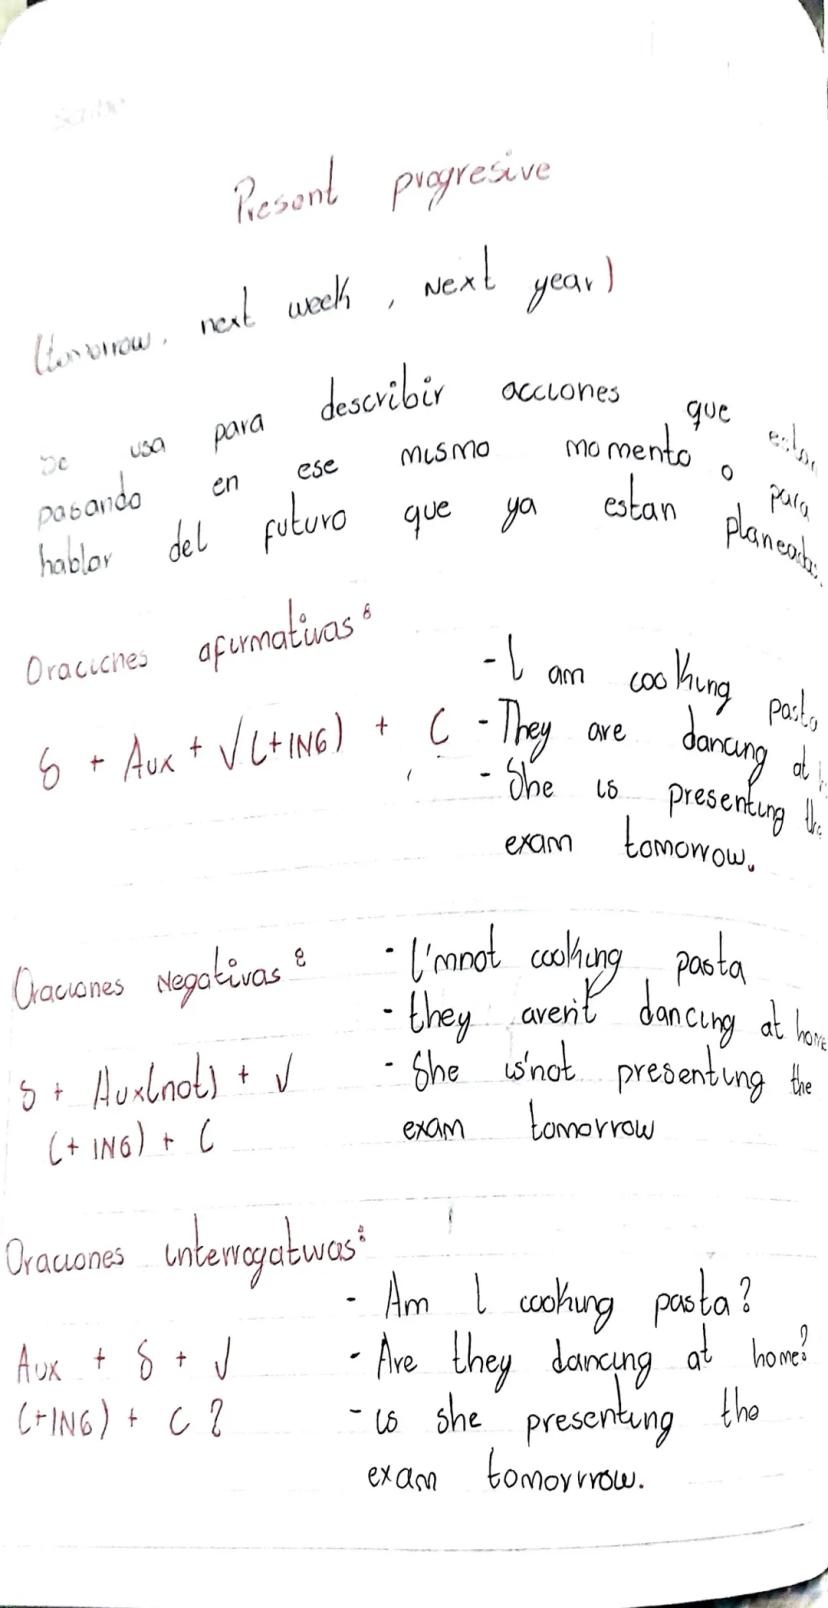 Scribe
Present progresive
(tomorrow, next week, Next year)
Se usa para describir acciones que estan
pasando en ese mismo momento o para
hablar del futuro que ya estan planeadas.
Oraciones afirmativas:
S + Aux + V(+ING) + C
- I am cooking pasta
- They are dancing at
- She is presenting the
exam tomorrow.
Oraciones Negativas:
S + Aux(not) + V
(+ ING) + C
- I'mnot cooking pasta
- they aren't dancing at home
- She is'not presenting the
exam tomorrow
Oraciones interrogativas:
Aux + S + V
(+ING) + C ?
- Am I cooking pasta?
- Are they dancing at home?
- is she presenting the
exam tomorrrow.